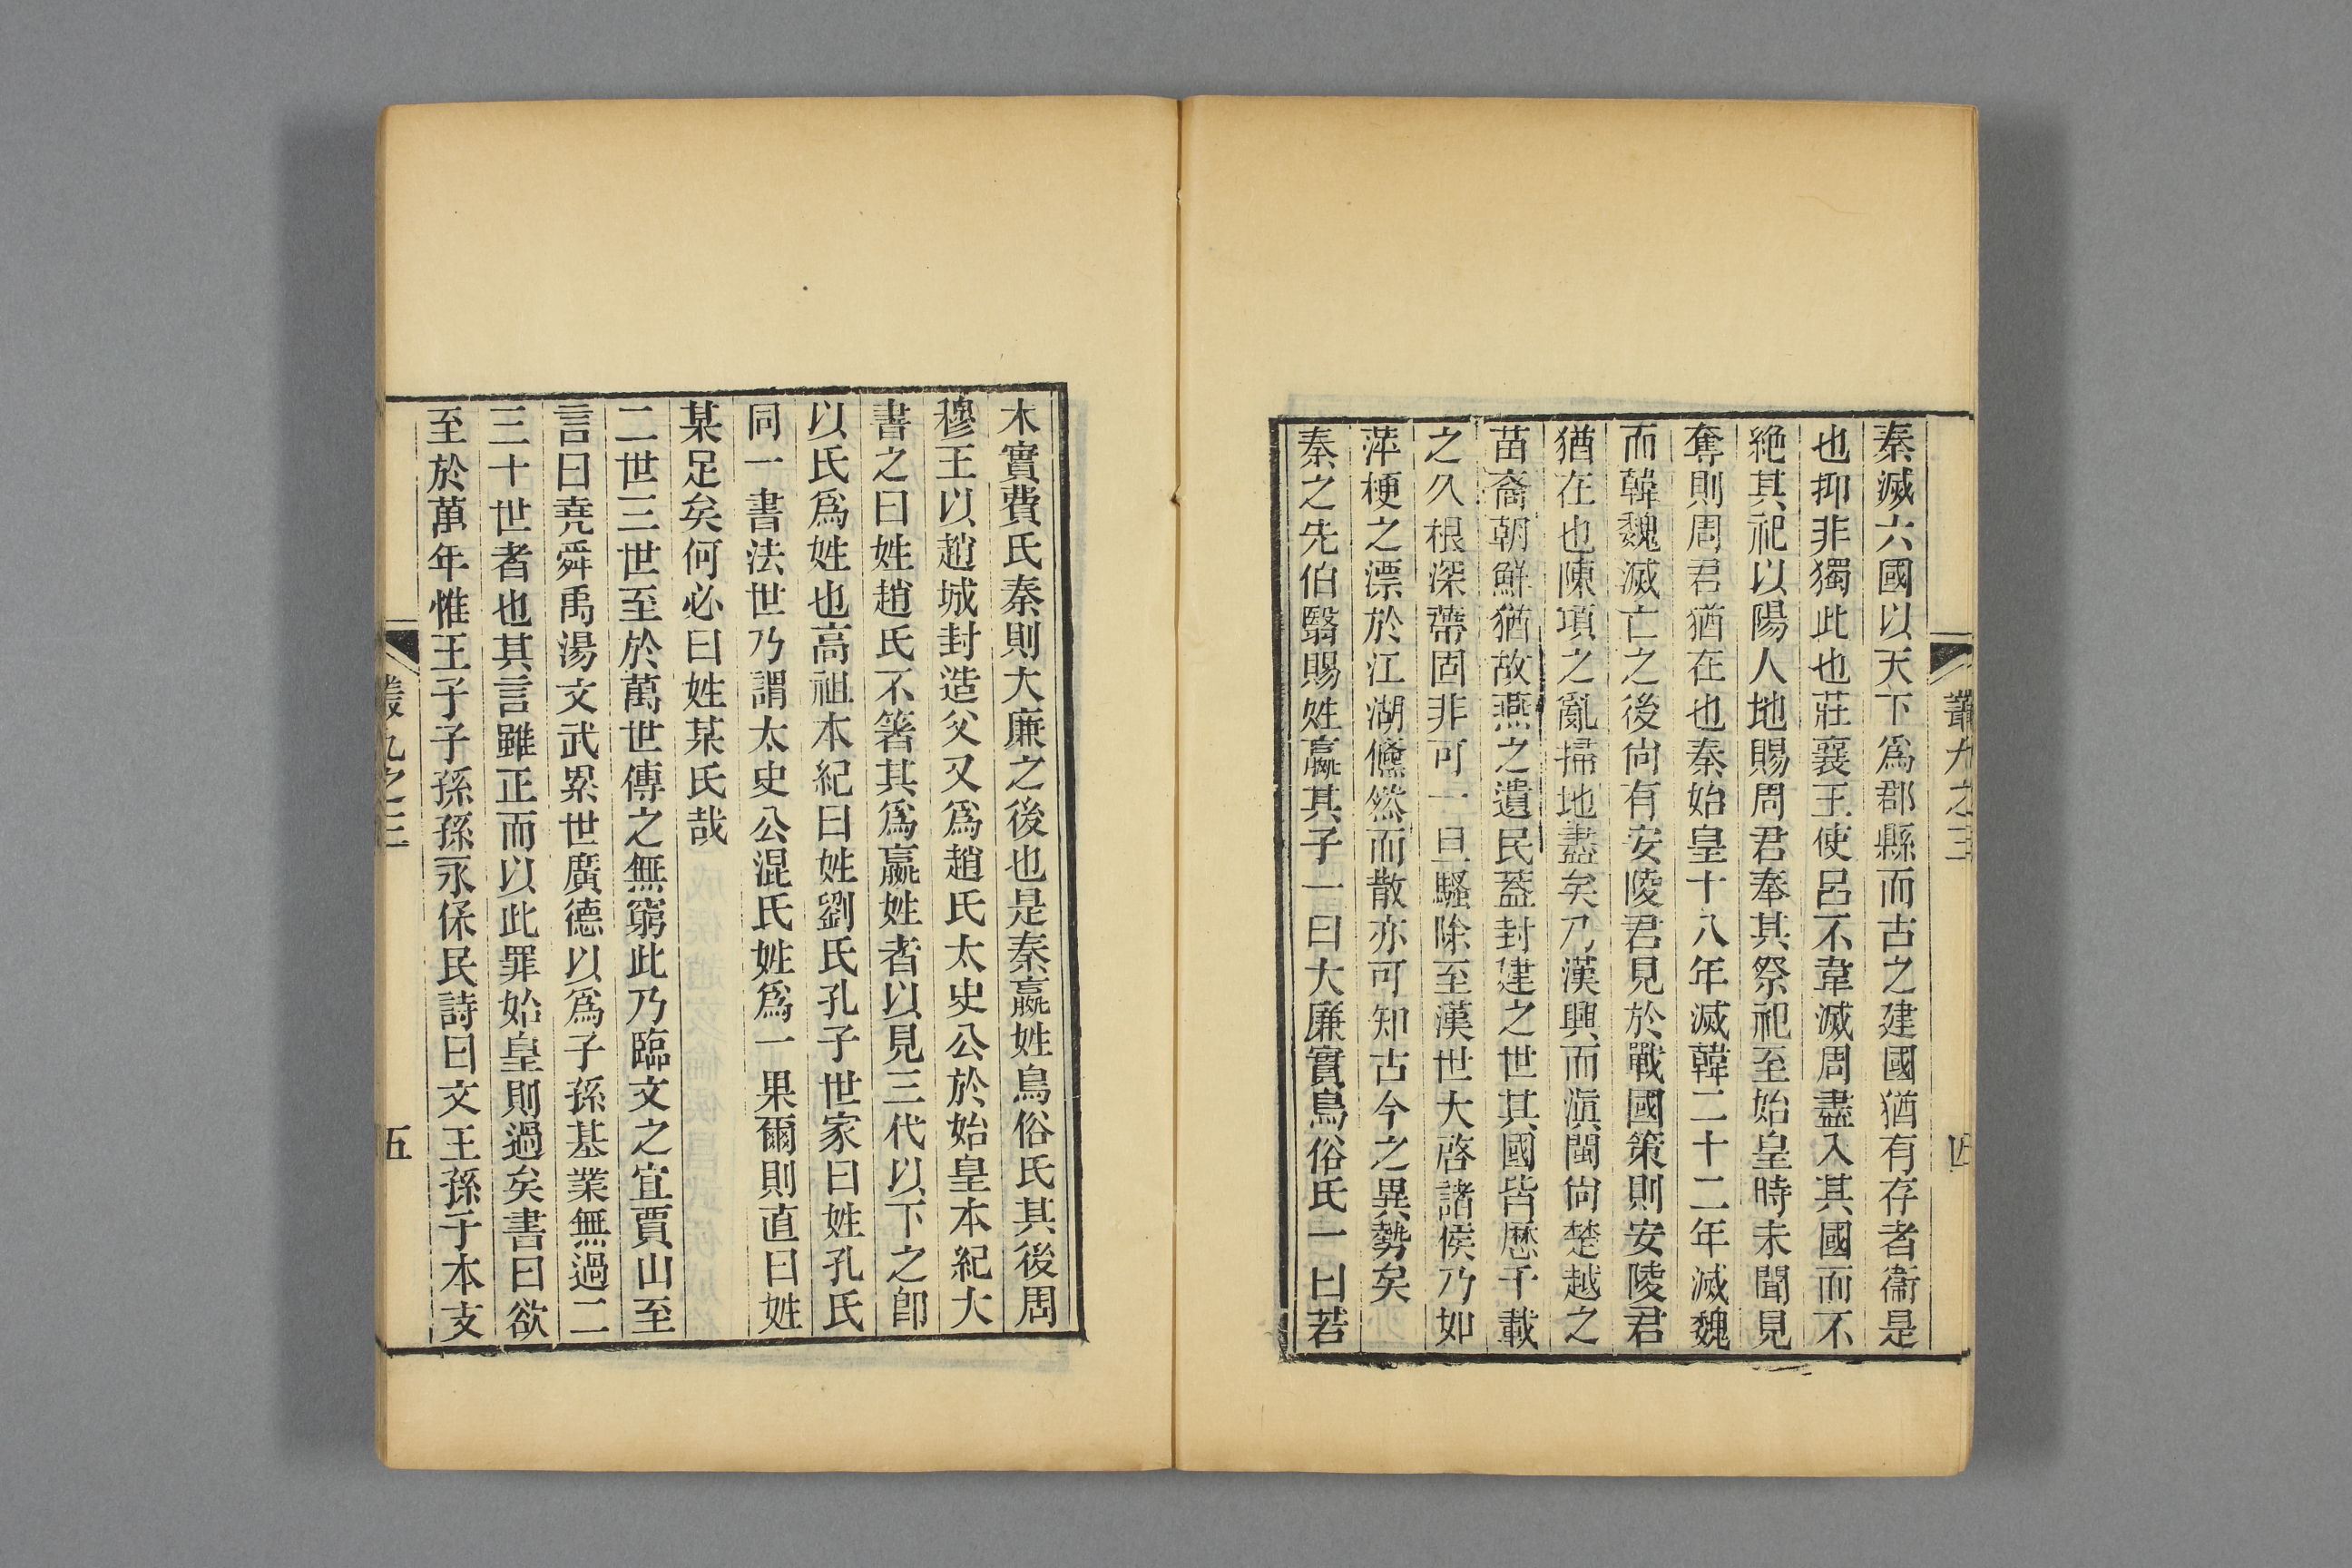 叢九之三
四
秦滅六國以天下為郡縣而古之建國猶有存者衞是
也抑非獨此也莊襄王使呂不韋滅周盡入其國而不
絶其祀以陽人地賜周君奉其祭祀至始皇時未聞見
奪則周君猶在也秦始皇十八年滅韓二十二年滅魏
而韓魏滅亡之後尙有安陵君見於戰國策則安陵君
猶在也陳項之亂掃地盡矣乃漢興而滇閩尙楚越之
苗裔朝鮮猶故燕之遺民蓋封建之世其國皆歴千載
之久根深蔕固非可一旦騷除至漢世大啓諸侯乃如
萍梗之漂於江湖儵然而散亦可知古今之異勢矣
秦之先伯翳賜姓嬴其子一曰大廉實鳥俗氏一曰若
木實費氏秦則大廉之後也是秦嬴姓鳥俗氏其後周
穆王以趙城封造父又爲趙氏太史公於始皇本紀大
書之曰姓趙氏不箸其爲嬴姓者以見三代以下之卽
以氏爲姓也高祖本紀曰姓劉氏孔子世家曰姓孔氏
同一書法世乃謂太史公混氏姓爲一果爾則直曰姓
某足矣何必曰姓某氏哉
二世三世至於萬世傳之無窮此乃臨文之宜賈山至
言曰堯舜禹湯文武累世廣德以爲子孫基業無過二
三十世者也其言雖正而以此罪始皇則過矣書曰欲
至於萬年惟王子子孫孫永保民詩曰文王孫子本支
叢九之三
五